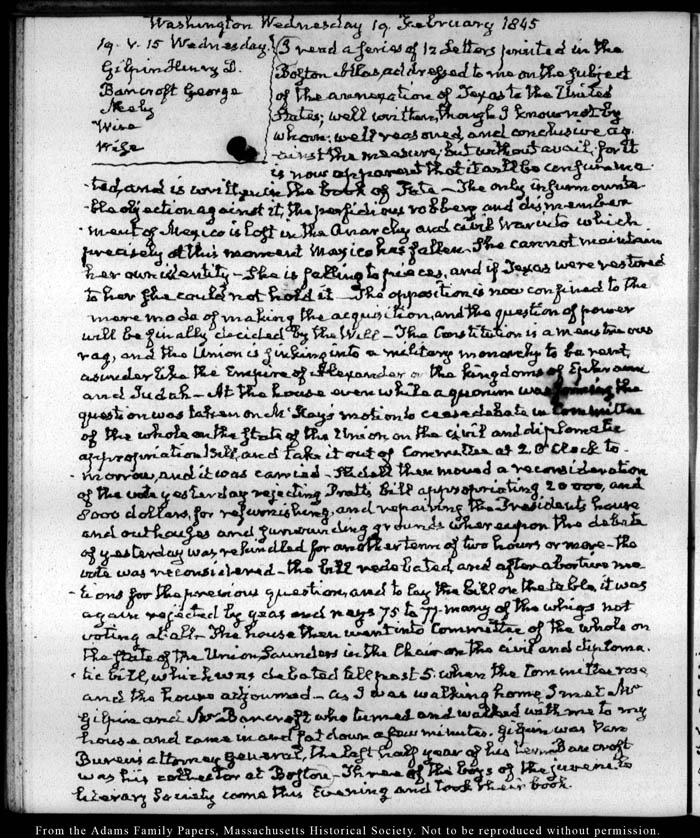 Washington Wednesday 19. February 1845
19. V. 15 Wednesday.
Gilpin Henry D.
Bancroft George
Neely
Wise
Wise
I read a series of 12 Letters printed in the
Boston Atlas addressed to me on the subject
of the annexation of Texas to the United
States; well written, though I know not by
whom; well reasoned, and conclusive ag-
-ainst the measure; but without avail, for it
is now apparent that it will be consumma-
ted, and is written in the book of Fate — The only insurmounta-
-ble objection against it, the perfidious robbery and dismember-
-ment of Mexico is lost in the Anarchy and civil War into which
precisely at this moment Mexico has fallen. She cannot maintain
her own identity — She is falling to pieces, and if Texas were restored
to her she could not hold it — The opposition is now confined to the
mere mode of making the acquisition, and the question of power
will be finally decided by the Will — The Constitution is a menstruous
rag, and the Union is sinking into a military monarchy, to be rent
asunder like the Empire of Alexander or the kingdoms of Ephraim
and Judah — At the house even while a quorum was forming the
question was taken on McKay's motion to cease debate in Committee
of the whole on the state of the Union on the civil and diplomatic
appropriation bill, and take it out of Committee at 2 O'Clock to-
-morrow, and it was carried — then moved a reconsideration
of the vote yesterday rejecting Pratt's bill appropriating 20 000, and
8000 dollars, for refurnishing, and repairing the President's house
and outhouses and surrounding grounds whereupon the debate
of yesterday was rekindled for another term of two hours or more — the
vote was reconsidered — the bill redebated, and after abortive mo-
-tions for the previous question, and to lay the bill on the table, it was
again rejected by yeas and nays 75 to 77. many of the whigs not
voting at all — The house then went into Committee of the whole on
the state of the Union, Saunders in the Chair on the civil and diploma-
-tic bill, which was debated till past 5. when the Committee rose
and the house adjourned — as I was walking home I met Mr
Gilpin and Mr Bancroft who turned and walked with me to my
house and came in and sat down a few minutes. Gilpin was Van
Buren's attorney General, the last half year of his term. Bancroft
was his collector at Boston — Three of the boys of the juvenile
literary Society came this Evening and took their book.
From the Adams Family Papers, Massachusetts Historical Society. Not to be reproduced without permission.